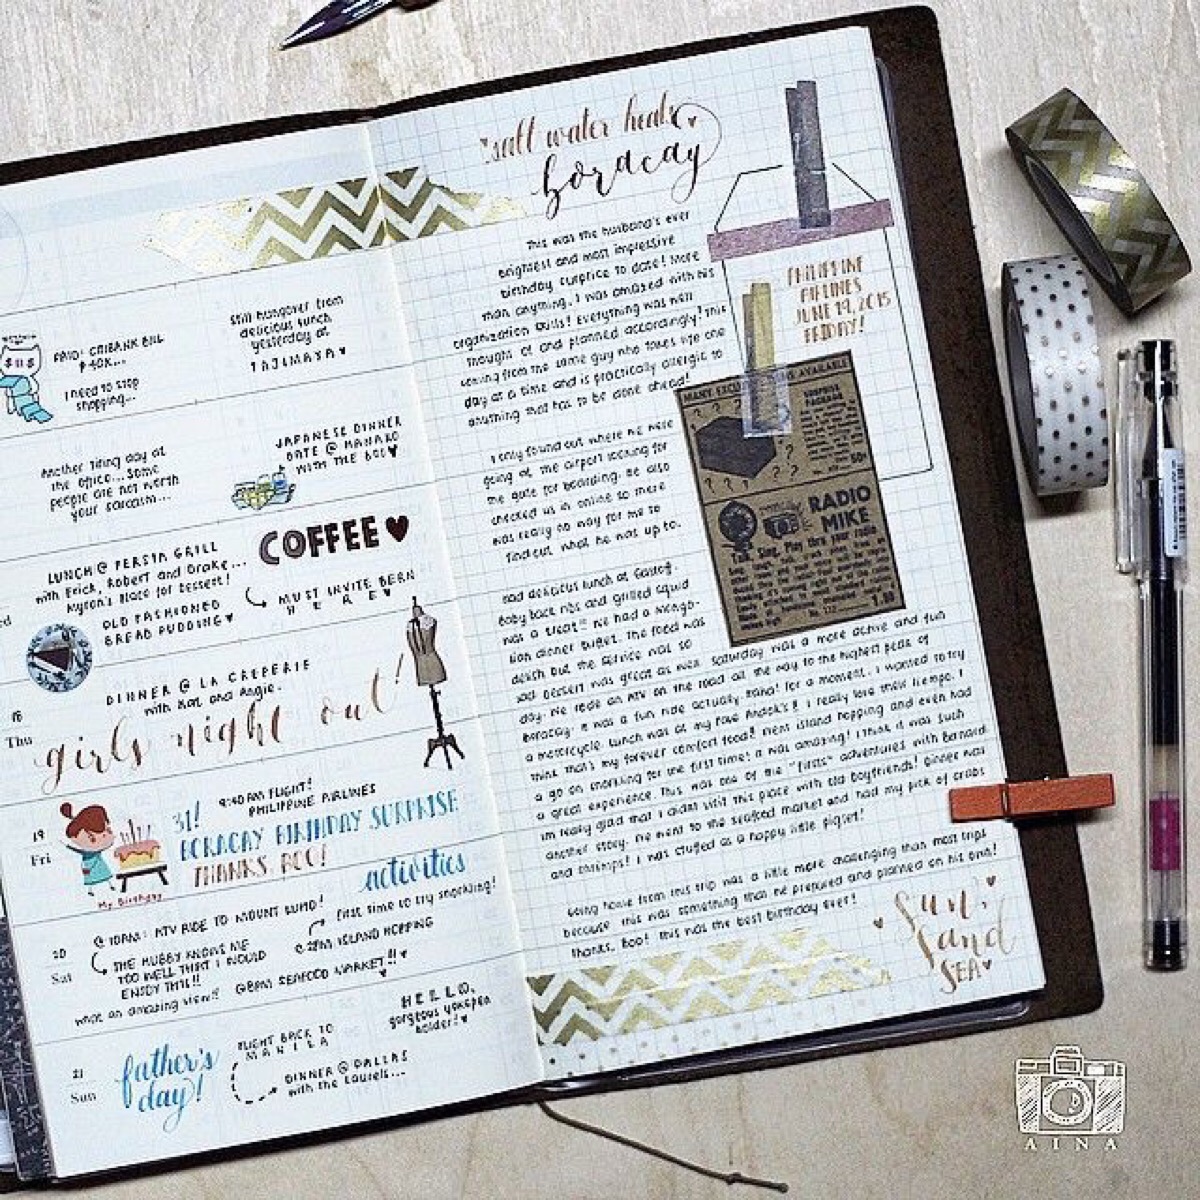 PAID: CITIBANK BILL
₱40K...
I need to stop
shopping...
Still hungover from
delicious lunch
yesterday at
HAJIMAYA
Another tiring day at
the office... Some
people are not worth
your sarcasm...
JAPANESE DINNER
DATE @
WITH THE BOO
LUNCH @ PERSIA GRILL
with Erick, Robert and Drake...
Myron's Place for dessert!
OLD FASHIONED
BREAD PUDDING
COFFEE
MUST INVITE BERN
HERE
18
Thu
DINNER @ LA CREPERIE
with Kat and Angie.
girls night out!
19
Fri
My Birthday
31!
9:40AM FLIGHT!
PHILIPPINE AIRLINES
BORACAY BIRTHDAY SURPRISE
THANKS, BOO!
activities
20
Sat
@ 10AM: ATV RIDE TO MOUNT LUHO!
THE HUBBY KNOWS ME
TOO WELL THAT I WOULD
ENJOY THIS!!
what an amazing view!!
first time to try snorkling!
@2PM ISLAND HOPPING
@8PM SEAFOOD MARKET!!!
HELLO,
gorgeous
holder!
21
Sun
father's
day!
FLIGHT BACK TO
MANILA
DINNER @ DALLAS
with the Laurels...
"salt water heals"
boracay
This was the husband's ever
brightest and most impressive
birthday surprise to date! More
than anything, I was amazed with his
organization skills! Everything was well
thought of and planned accordingly! This
coming from the same guy who takes life one
day at a time and is practically allergic to
anything that has to be done ahead!
I only found out where we were
going at the airport looking for
the gate for boarding. He also
checked us in online so there
was really no way for me to
find out what he was up to.
Had delicious lunch at Gasthof.
Baby back ribs and grilled squid
was a treat!! We had a Mongo-
lian dinner buffet. The food was
delish but the service was so
sad. Dessert was great as well. Saturday was a more active and fun
day. We rode an ATV on the road all the way to the highest peak of
Boracay. It was a fun ride actually, haha! For a moment, I wanted to try
a motorcycle. Lunch was at my fave Andok's!! I really love their liempo. I
think that's my forever comfort food! Went island hopping and even had
a go on snorkling for the first time! It was amazing! I think it was such
a great experience. This was one of the "firsts" adventures with Bernard.
I'm really glad that I didn't visit this place with old boyfriends! Dinner was
another story. We went to the seafood market and had my pick of crabs
and shrimps! I was stuffed as a happy little piglet!
Going home from this trip was a little more challenging than most trips
because this was something that he prepared and planned on his own!
Thanks, Boo! This was the best birthday ever!
PHILIPPINE
AIRLINES
JUNE 19, 2015
FRIDAY!
AVAILABLE
SURPRISE
PACKAGE
RADIO
MIKE
Talk, Sing, Play thru your radio
1.00
Sun,
Sand
SEA
AINA